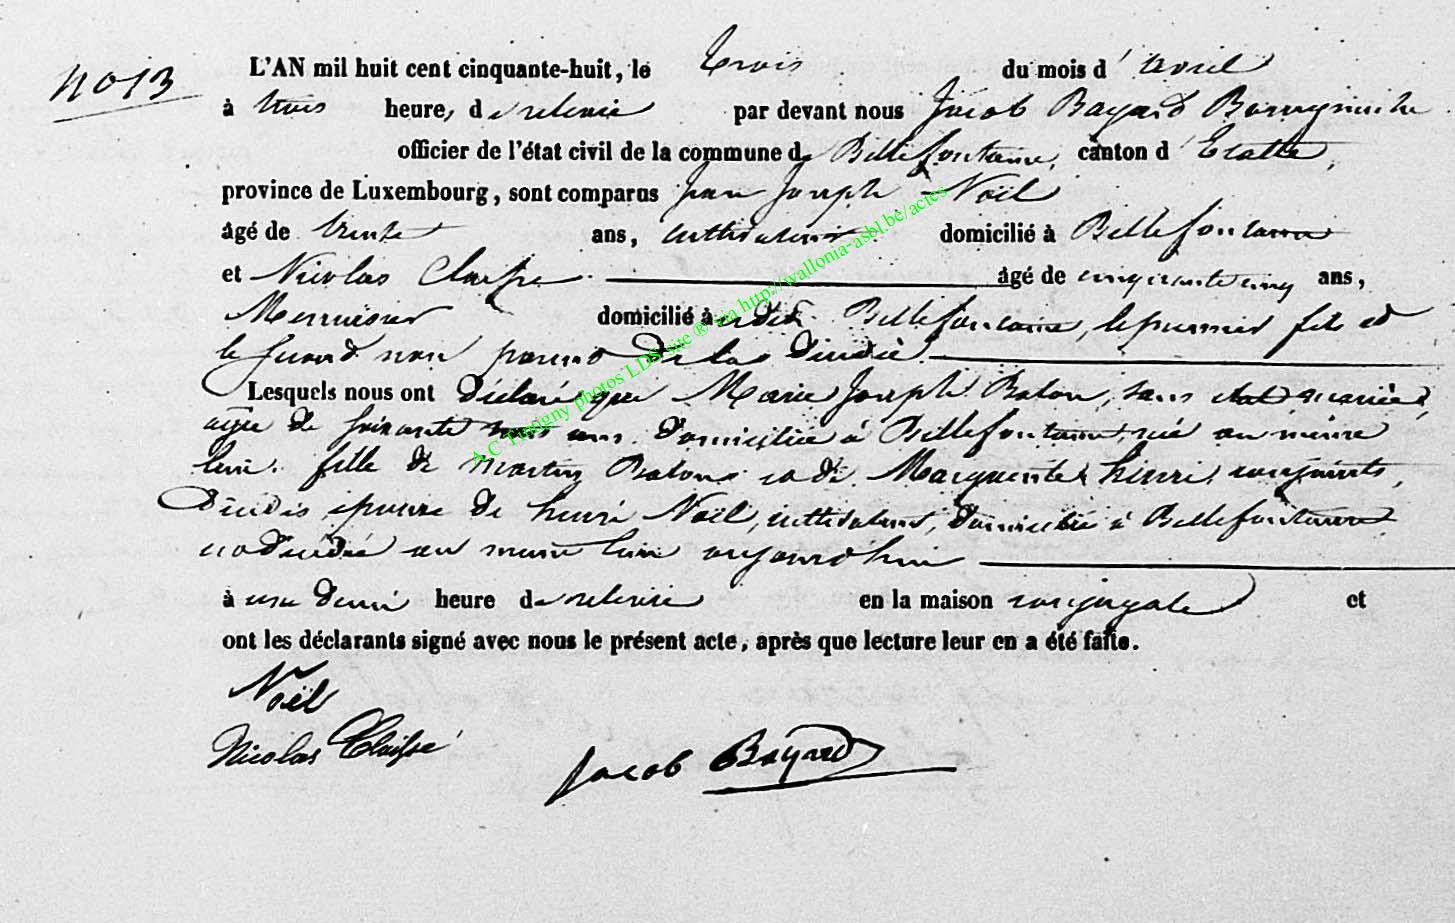 No 13
L'AN mil huit cent cinquante-huit, le trois du mois d'avril
à trois heures, de relevée par devant nous Jacob Bayard Bourgmestre
officier de l'état civil de la commune de Bellefontaine, canton d'Etalle,
province de Luxembourg, sont comparus Jean Joseph Noël
âgé de trente ans, cultivateur domicilié à Bellefontaine
et Nicolas Claisse âgé de cinquante cinq ans,
Menuisier domicilié à Bellefontaine, le premier fils et
le second non parent de la décédée
Lesquels nous ont déclaré que Marie Joseph Baton, sans état,
âgée de soixante ans domiciliée à Bellefontaine, née au même
lieu, fille de Martin Baton et de Marguerite henri, conjoints,
décédés, épouse de henri Noël, cultivateur, domicilié à Bellefontaine
est décédée au même lieu aujourd'hui
à une demi heure de relevée en la maison conjugale et
ont les déclarants signé avec nous le présent acte, après que lecture leur en a été faite.
Noël
Nicolas Claisse
Jacob Bayard
A.C. Tintigny photos LDS site ® via http://wallonia-asbl.be/actes